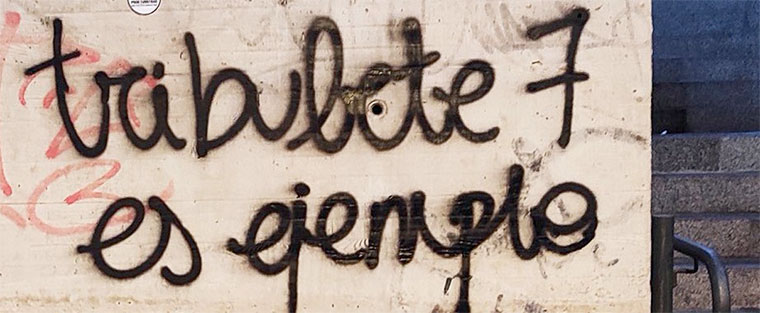 tribulete 7
es ejemplo